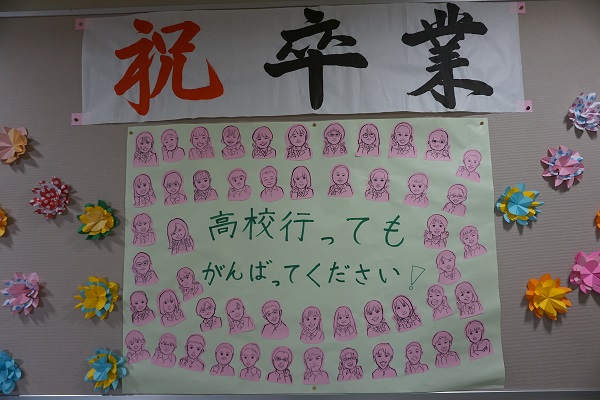 祝卒業
高校行っても
がんばってください!